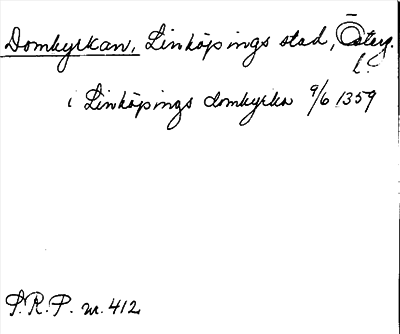 Domkyrkan, Linköpings stad, Österg.
l.
i Linköpings domkyrka 9/6 1359
S.R.P. nr. 412